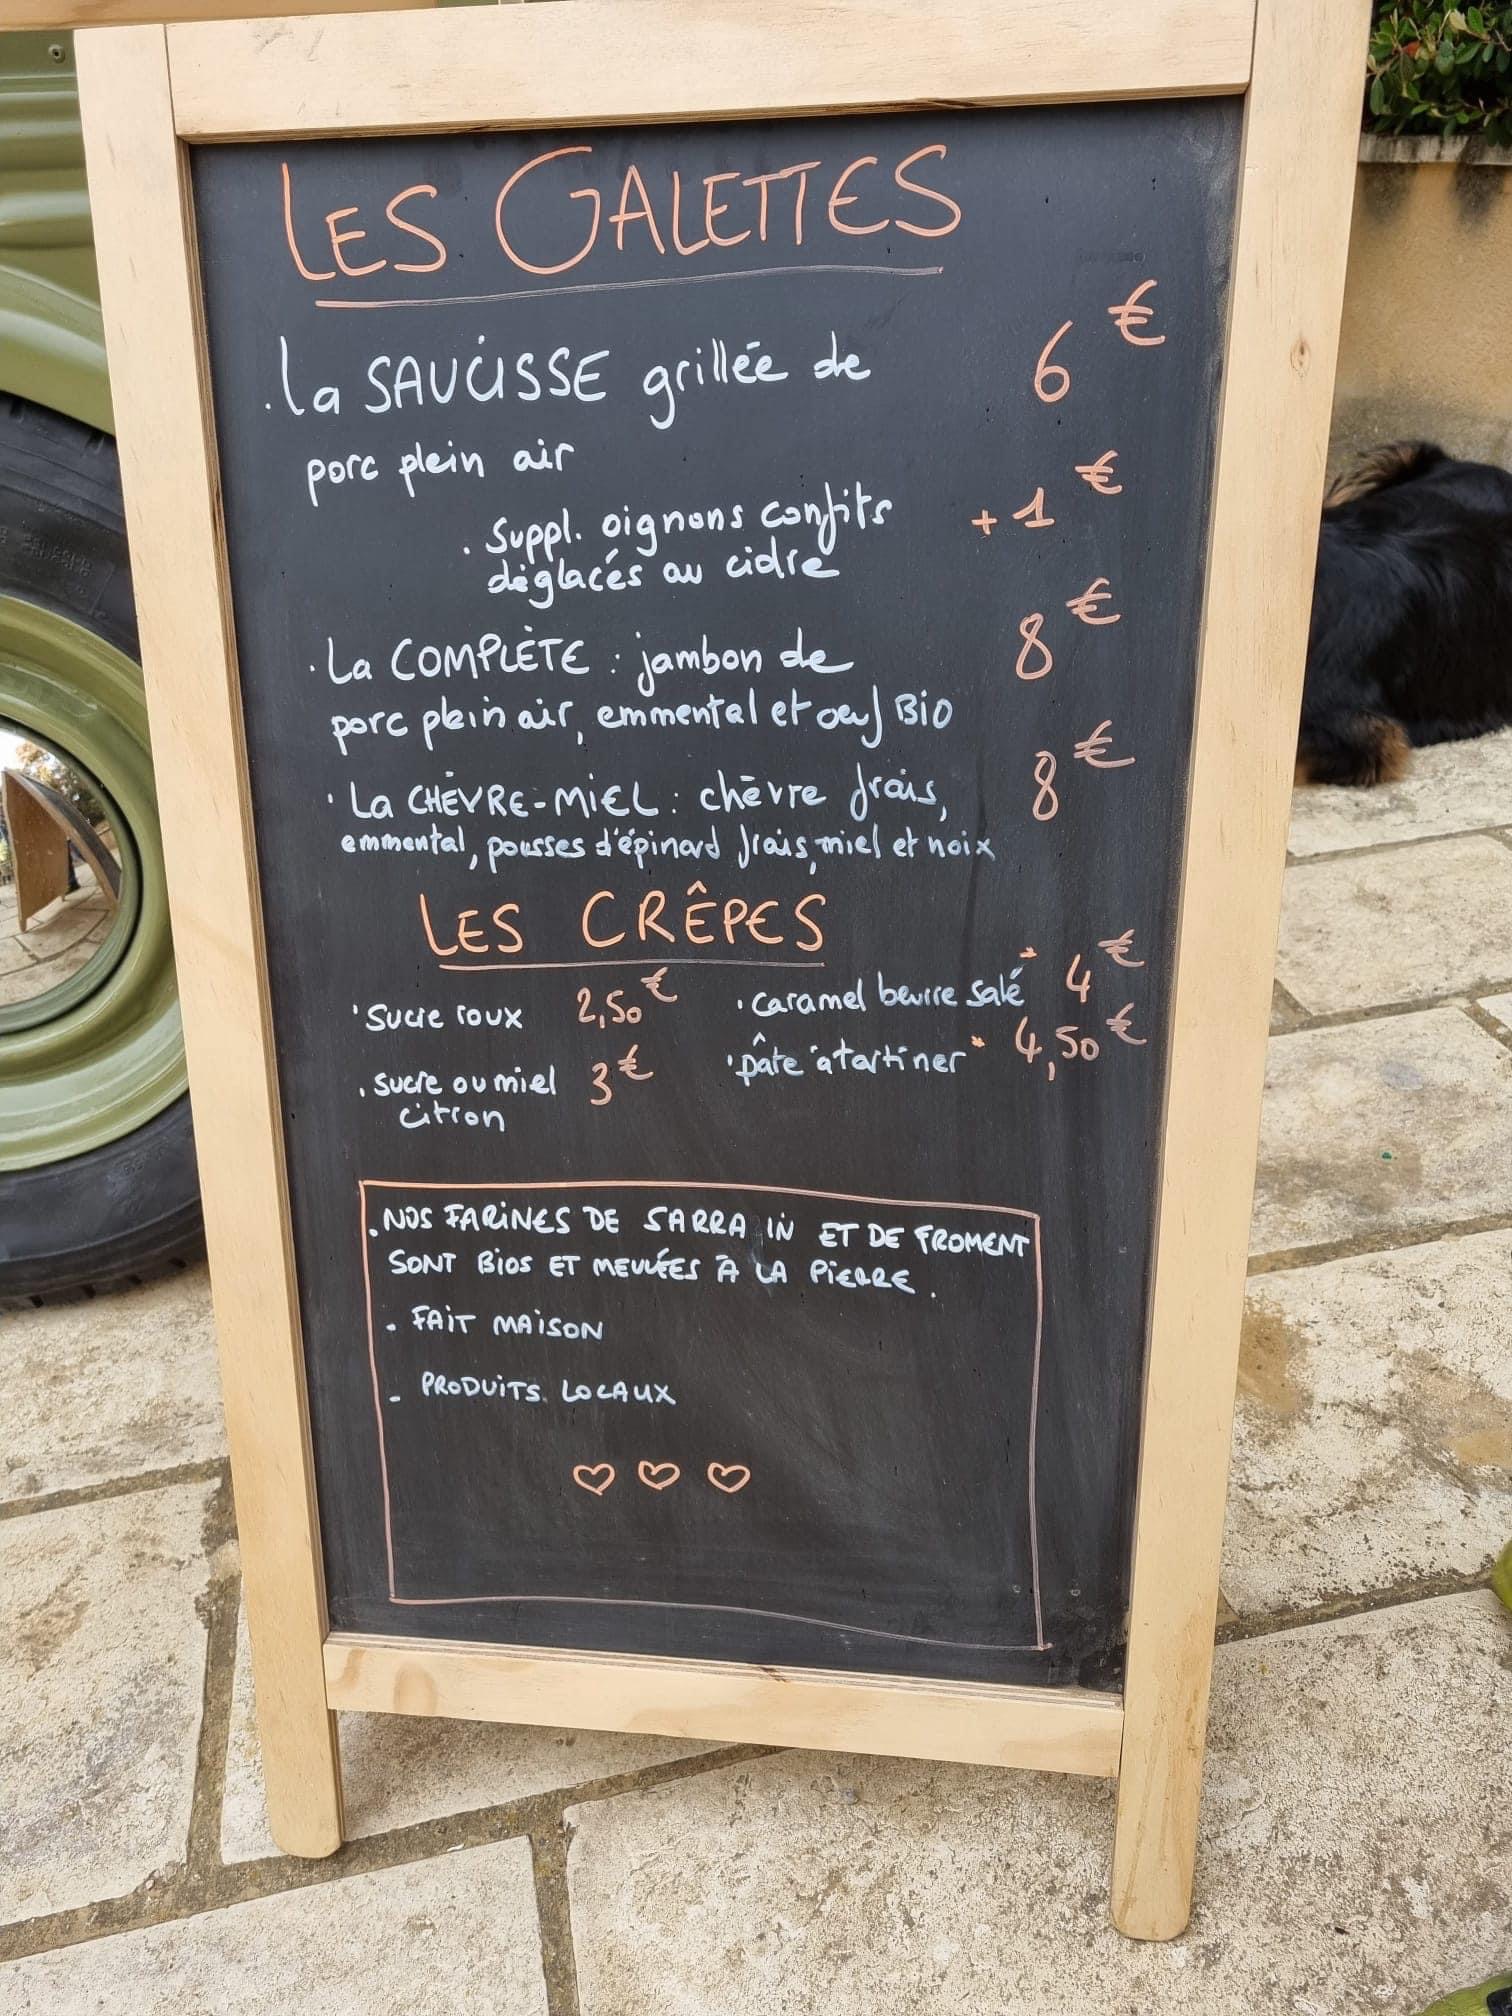 LES GALETTES
. La SAUCISSE grillée de 6 €
porc plein air
. Suppl. oignons confits + 1 €
déglacés au cidre
. La COMPLÈTE : jambon de 8 €
porc plein air, emmental et oeuf BIO
. La CHÈVRE-MIEL : chèvre frais, 8 €
emmental, pousses d'épinard frais, miel et noix
LES CRÊPES
. Sucre roux 2,50 €
. sucre ou miel 3 €
citron
. caramel beurre salé * 4 €
. pâte à tartiner * 4,50 €
. NOS FARINES DE SARRA IN ET DE FROMENT
SONT BIOS ET MEULÉES À LA PIERRE.
- FAIT MAISON
- PRODUITS LOCAUX
♡ ♡ ♡